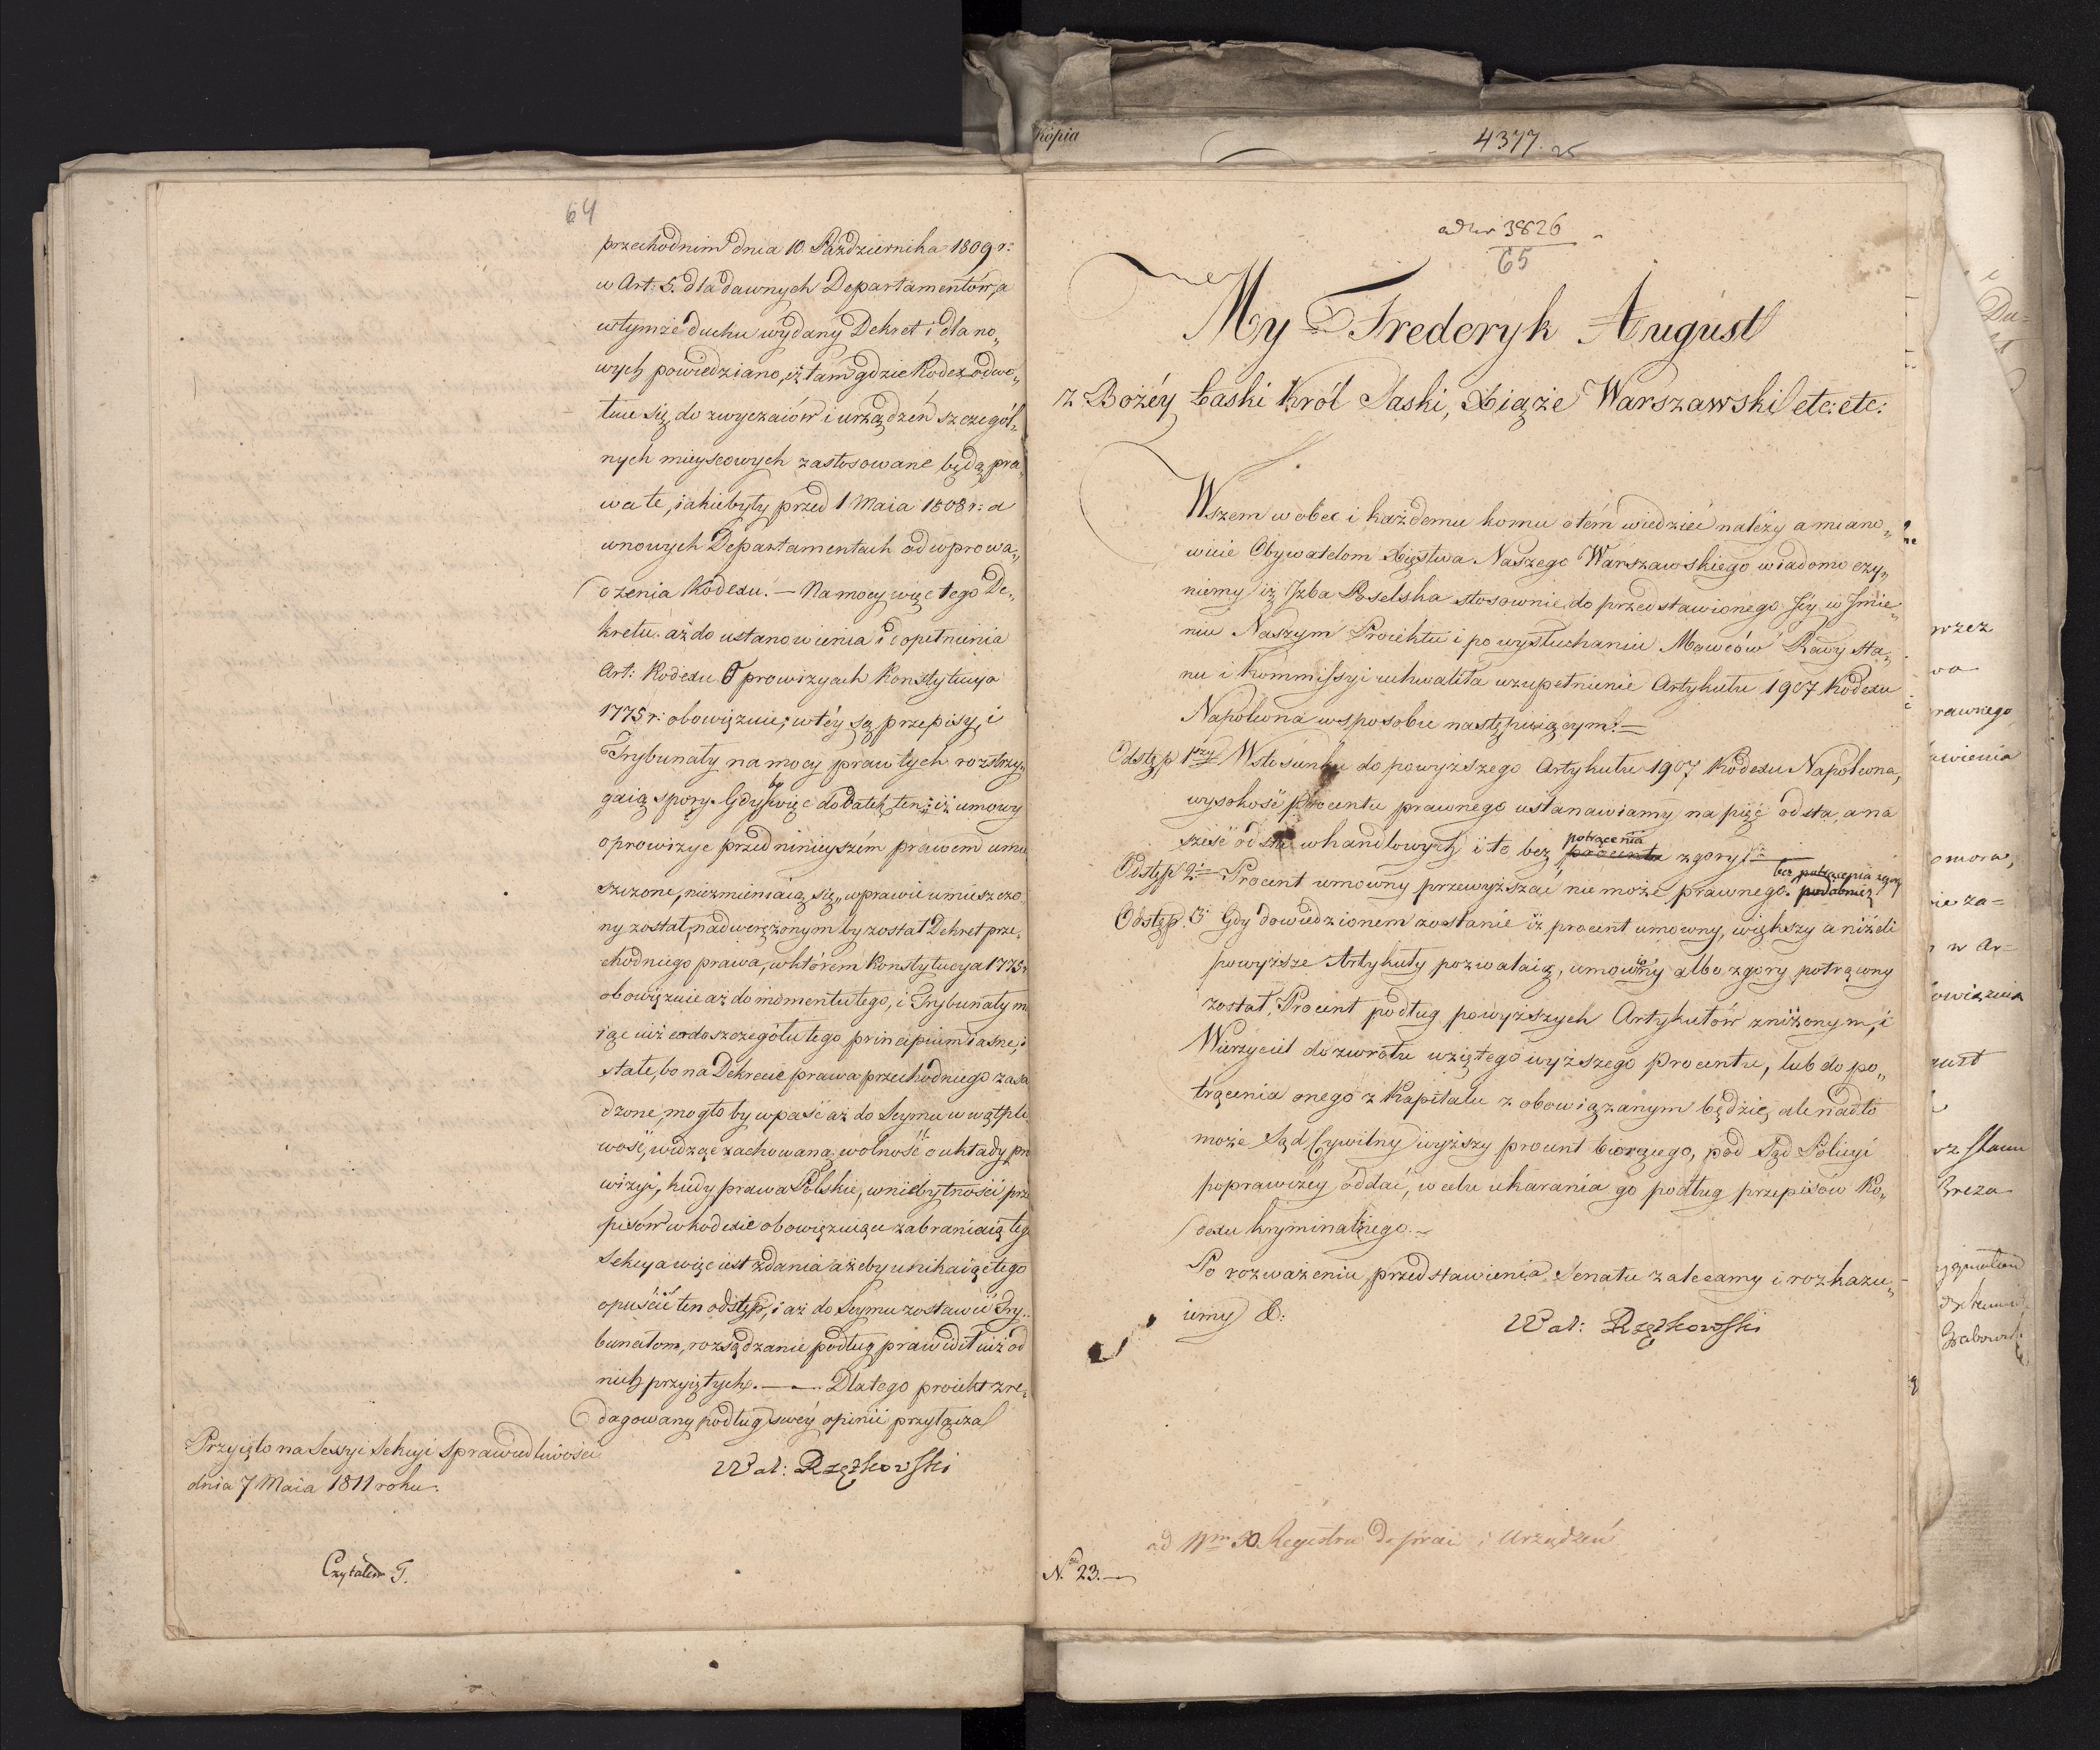 64
przechodnim dnia 10 Października 1809 r:
w Art: 5. dla dawnych Departamentów, a
w tymże duchu wydany Dekret i dla no„
wych powiedziano, iż tam gdzie Kodex odwo„
łuie się do zwyczaiów i urządzeń szczegól„
nych mieyscowych zastosowane będą pra„
wa te, iakie były przed 1 Maia 1808 r: a
w nowych Departamentach od wprowa„
dzenia Kodexu. — Na mocy więc tego De„
kretu aż do ustanowienia i dopełnienia
Art: Kodexu O prowizyach Konstytucya
1775 r: obowiązuie, w téy są przepisy, i
Trybunały na mocy praw tych rozstrzy„
gaią spory. Gdyby więc dodatek ten: iż umowy
o prowizye przed ninieyszém prawem umie
szczone, niezmieniaią się„ w prawie umieszczo„
ny został, nadwerężonym by został Dekret prze„
chodniego prawa, w którem Konstytucya 1775 r
obowiązuie aż do momentu tego, i Trybunały m
iąc iuż co do szczegółu tego principium iasne, i
stałe, bo na Dekrecie prawa przechodniego zasa
dzone, mogłoby wpaść aż do Seymu w wątpli
wość, widząc zachowaną wolność o układy pro
wizyi, kiedy prawa Polskie, w niebytności prze
pisów w Kodexie obowiązuiące zabraniaią tego
Sekcya więc iest zdania ażeby unikaiąc tego
opuścić ten odstęp, i aż do Seymu zostawić Try„
bunałom, rozsądzanie podług prawideł iuż od
nich przyiętych. —— Dla tego proiekt zre„
dagowany podług swéy opinii przyłącza
Wal: Rzętkowski
Przyięto na Sessyi Sekcyi Sprawiedliwości
dnia 7 Maia 1811 roku.
Czytałem T.
Kópia
4377.
ad nr 3826
65
My Frederyk August
z Bożéy Łaski Król Saski, Xiąże Warszawski etc: etc:
Wszem wobec i każdemu komu o tém wiedzieć należy a miano„
wicie Obywatelom Xięstwa Naszego Warszawskiego wiadomo czy„
niemy iż Izba Poselska stosownie do przedstawionego Jéy w Jmie„
niu Naszym Proiektu i po wysłuchaniu Mowców Rady Sta„
nu i Kommissyi uchwaliła uzupełnienie Artykułu 1907 Kodexu
Napoleona w sposobie następuiącym. —
Odstęp 1szy W stosunku do powyższego Artykułu 1907 Kodexu Napoleona,
wysokość procentu prawnego ustanawiamy na pięć od sta, a na
sześć od sta w handlowych i to bez procentu potrącenia z gory. —
Odstęp 2. Procent umowny przewyższać nie może prawnego. podobnież bez potrącenia z gory
Odstęp. 3 Gdy dowiedzionem zostanie iż procent umowny, większy aniżeli
powyższe Artykuły pozwalaią, umowiony albo z gory potrącony
został, Procent podług powyższych Artykułów zniżonym, i
Wierzyciel do zwrotu wziętego wyższego Procentu, lub do po„
trącenia onego z Kapitału zobowiązanym będzie, ale nadto
może Sąd Cywilny wyższy procent biorącego, pod Sąd Policyi
poprawczéy oddać, w celu ukarania go podług przepisow Ko„
dexu kryminalnego. —
Po rozważeniu przedstawienia Senatu zalecamy i rozkazu„
iemy &:
Wal: Rzętkowski
ad Nrm 50. Regestru do praw i Urządzeń
N. 23. —
przez
rawnego
wienia
Breza